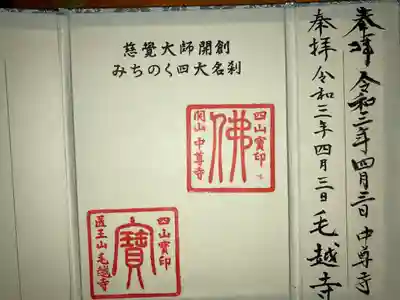 慈覺大師開創
みちのく四大名刹
四山寶印
佛
関山 中尊寺
四山寶印
寶
医王山 毛越寺
奉拝 令和三年四月三日 中尊寺
奉拝 令和三年四月三日 毛越寺